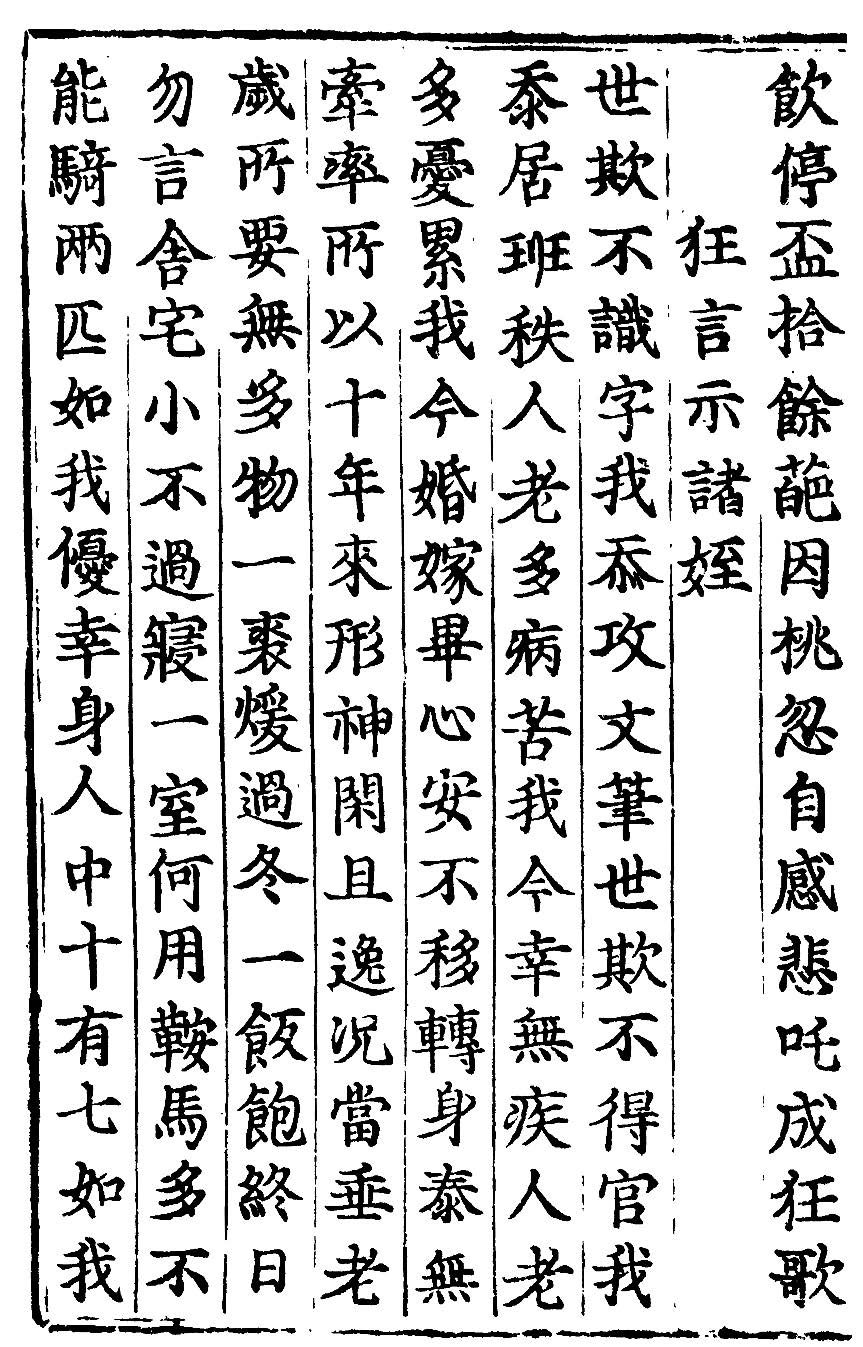 飲停盃拾餘葩因桃忽自感悲吒成狂歌
狂言示諸姪
世欺不識字我忝攻文筆世欺不得官我
忝居班秩人老多病苦我今幸無疾人老
多憂累我今婚嫁畢心安不移轉身泰無
牽率所以十年來形神閑且逸況當垂老
歲所要無多物一裘煖過冬一飯飽終日
勿言舍宅小不過寢一室何用鞍馬多不
能騎兩匹如我優幸身人中十有七如我